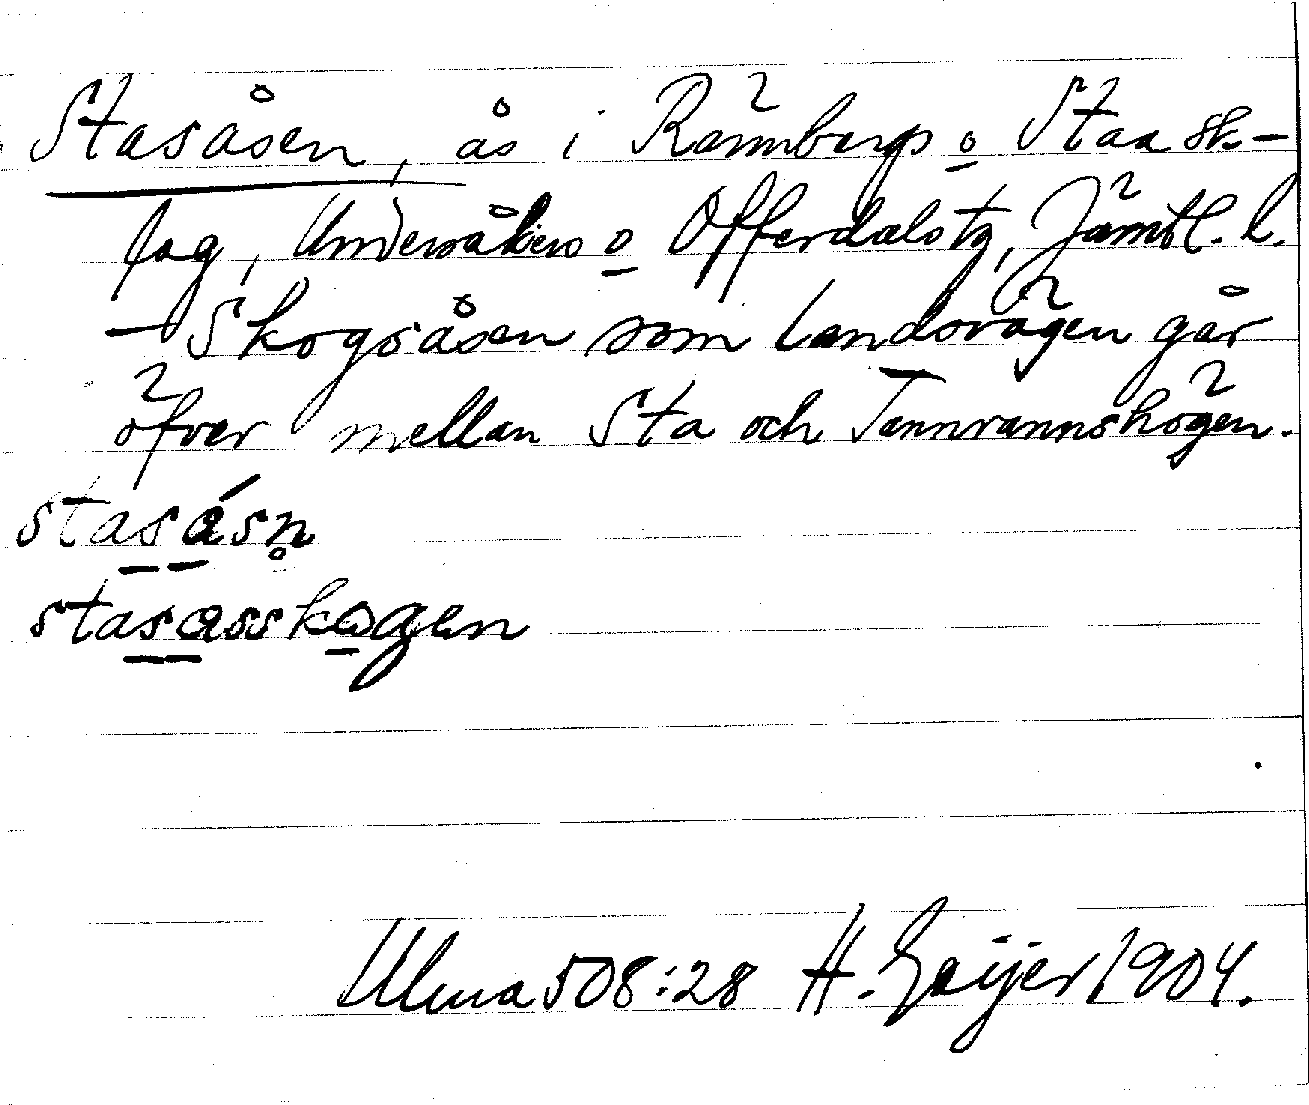 Stasåsen, ås i Rännbergs o Staa sk-
fog, Undersåkers o Offerdals tg, Jämtl. l.
- Skogsåsen som landsvägen går
öfver mellan Sta och Tännvannshögen.
stasásn̥
stasasskogen
Ulma 508:28 H. Geijer 1904.